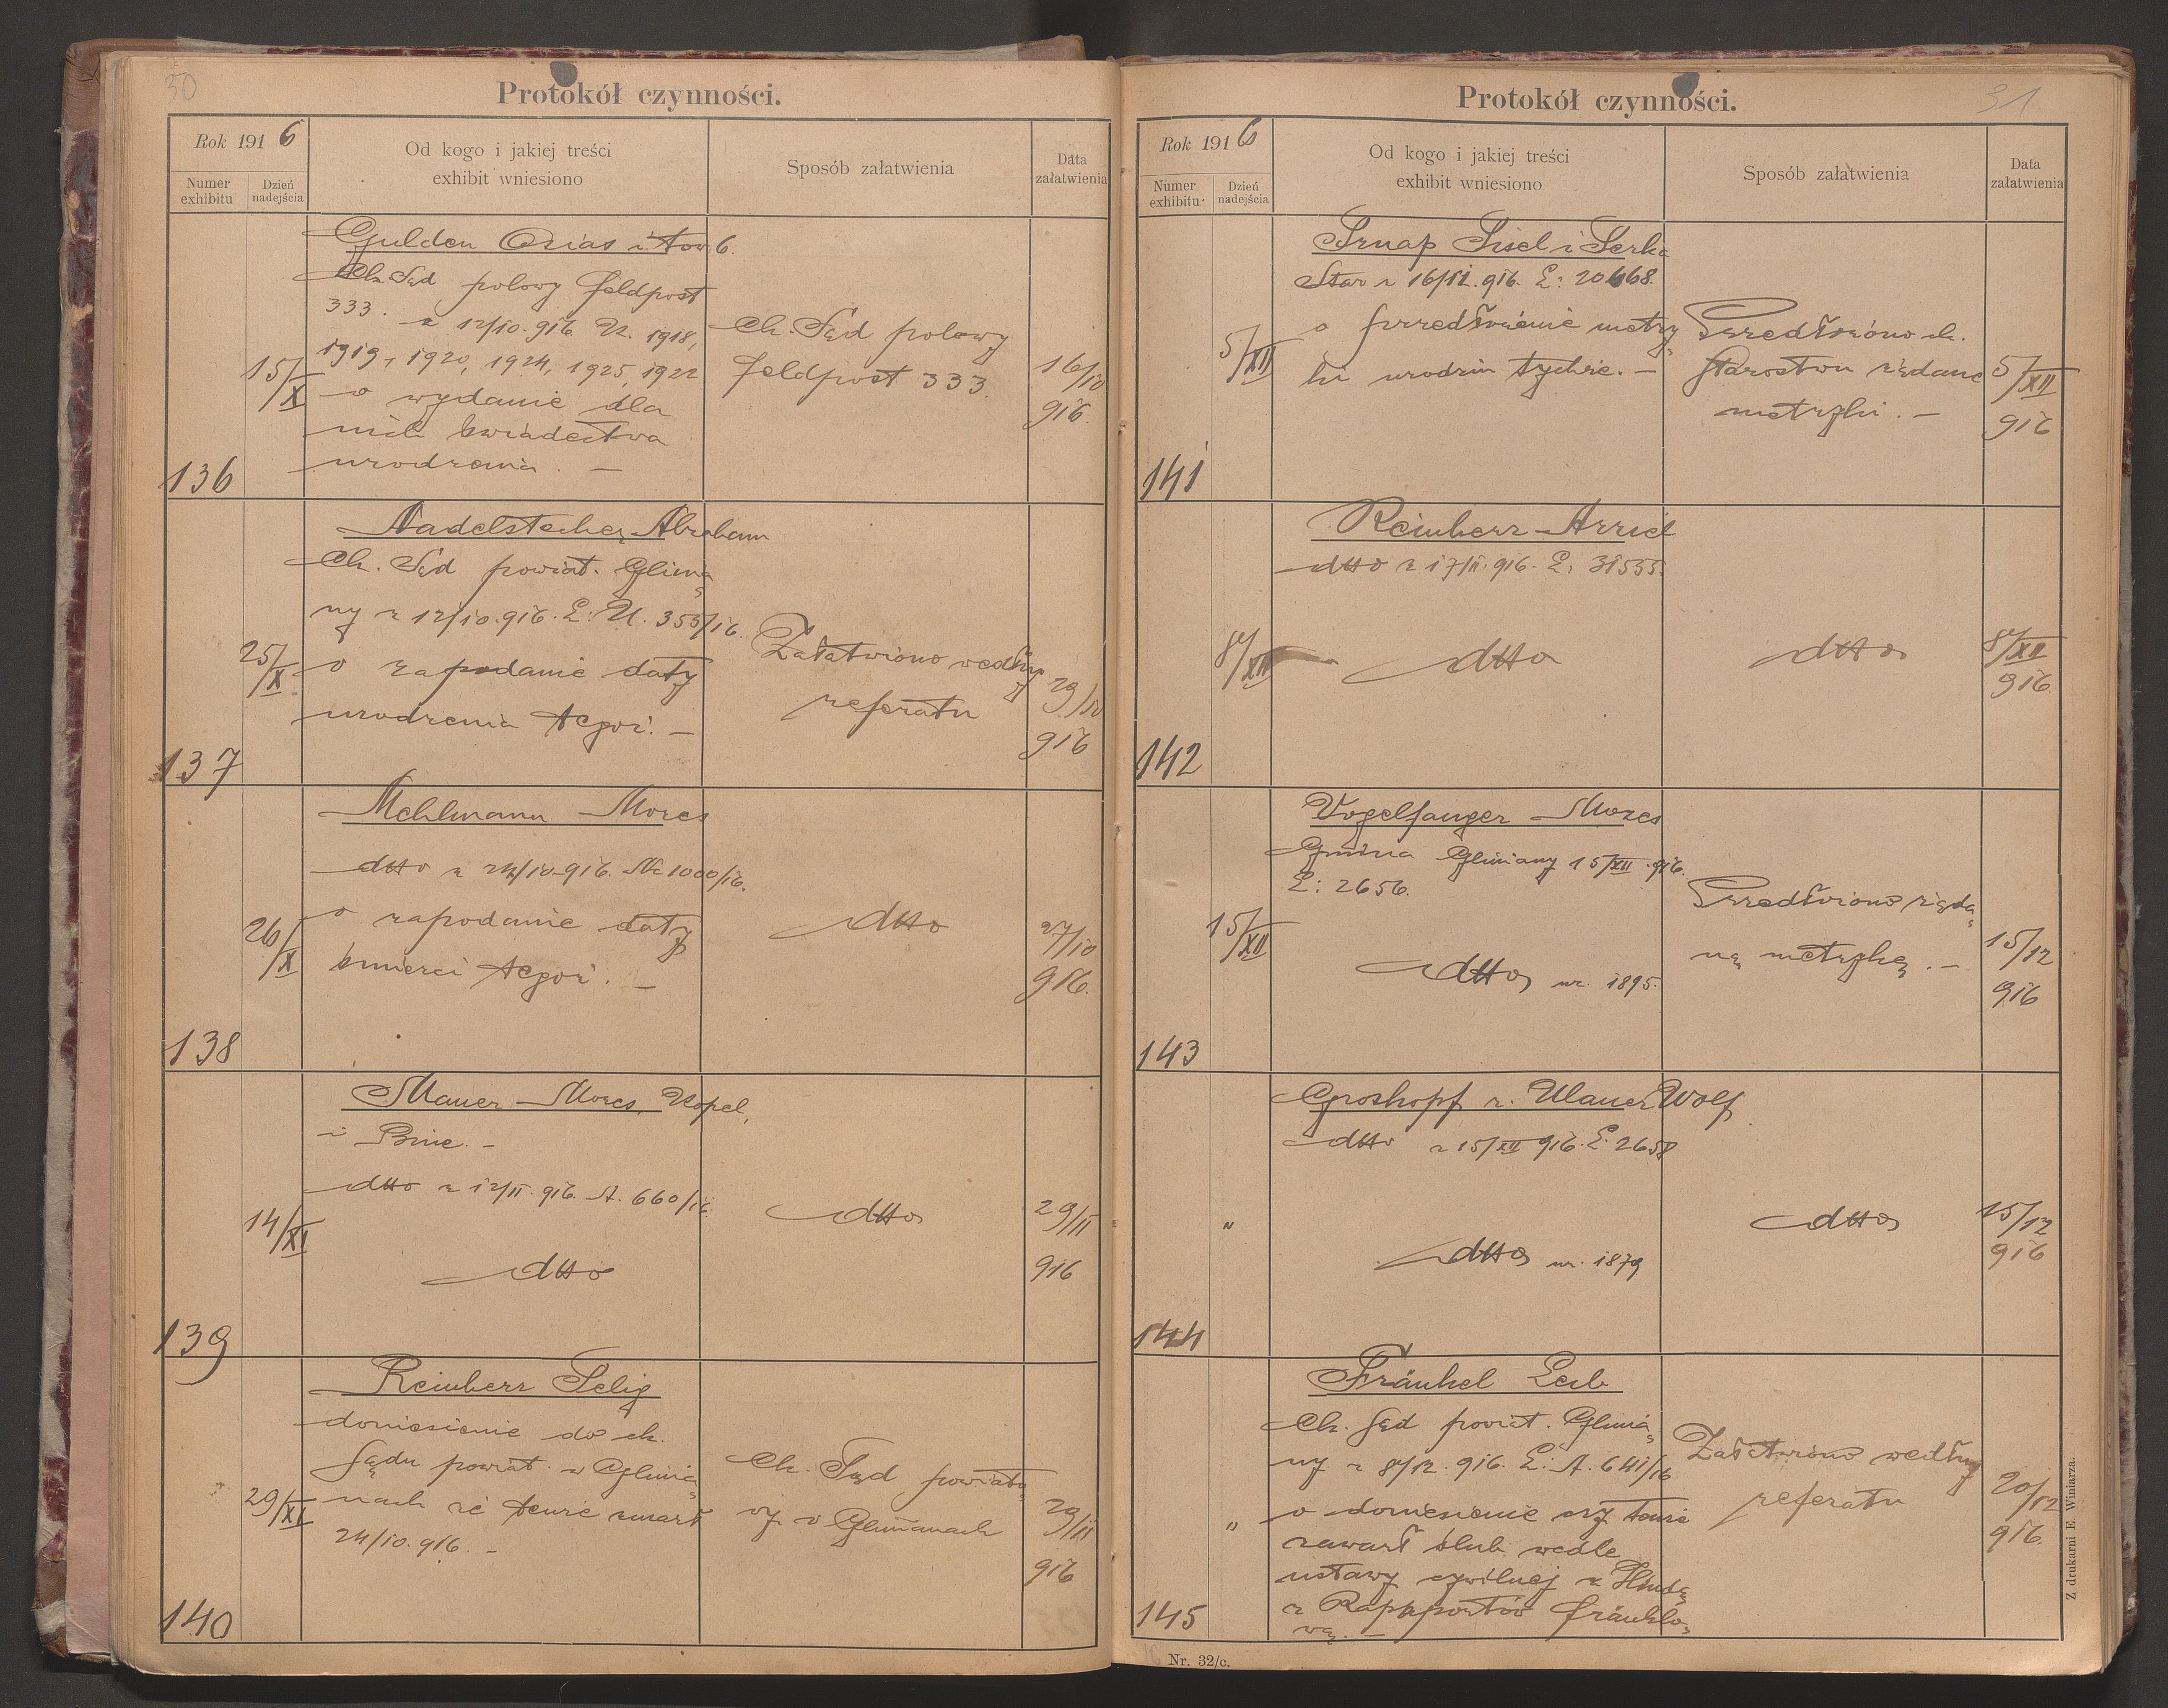 30
Protokół czynności.
Rok 1916
Numer exhibitu
Dzień nadejścia
Od kogo i jakiej treści
exhibit wniesiono
Sposób załatwienia
Data
załatwienia
Gulden Ozias i tow 6.
Ck. Sąd polowy feldpost
333. z 12/10. 916. K. 1918,
1919, 1920, 1924, 1925, 1922
o wydanie dla
nich świadectwa
urodzenia. —
136
15/X
Ck. Sąd polowy
feldpost 333.
16/10
916.
Nadelstecher Abraham
Ck. Sąd powiat. Glinia
ny z 12/10. 916. L: U. 355/16.
o zapodanie daty
urodzenia tegoż. —
137
25/X.
Załatwiono według
referatu
29/10
916
Mehlmann Mozes
dtto z 24/10. 916. Nc 1000/16.
o zapodanie daty
śmierci tegoż. —
138
26/X
dtto
27/10
916.
Mauer Mozes, Kopel,
i Brie. —
dtto z 12/11. 916. A. 660/16.
dtto
139
14/XI
dtto
29/11
916
Reinherz Selig
doniesienie do ck.
Sądu powiat. w Glinia
nach że tenże zmarł
24/10. 916. —
140
29/XI
Ck. Sąd powiato
wy w Glinianach
29/11
916
31
Protokół czynności.
Rok 1916
Numer exhibitu
Dzień nadejścia
Od kogo i jakiej treści
exhibit wniesiono
Sposób załatwienia
Data
załatwienia
Sznap Sisel i Serka
Star z 16/11. 916. L: 20468.
o przedłożenie metry
ki urodzin tychże. —
141
5/XII
Przedłożono ck.
Starostwu żądane
metryki. —
5/XII
916
Reinherz Arziel
dtto z 17/11. 916. L: 31555.
dtto
142
8/XII
dtto
8/XII
916
Vogelfanger Mozes
Gmina Gliniany 15/XII. 916.
L: 2656.
dtto ur. 1895.
143
15/XII
Przedłożono żąda
ną metrykę. —
15/12
916
Groskopf r. Mauer Wolf
dtto z 15/XII 916. L: 2658
dtto ur. 1879
144
"
dtto
15/12
916
Fränkel Leib
Ck. Sąd powiat. Glinia
ny z 8/12. 916. L: A. 641/16
o doniesienie czy tenże
zawarł ślub wedle
ustawy cywilnej z Hindą
z Rappaportów Fränklo
wą. —
145
"
Załatwiono według
referatu
20/12
916.
Z drukarni E. Winiarza.
Nr. 32/c.